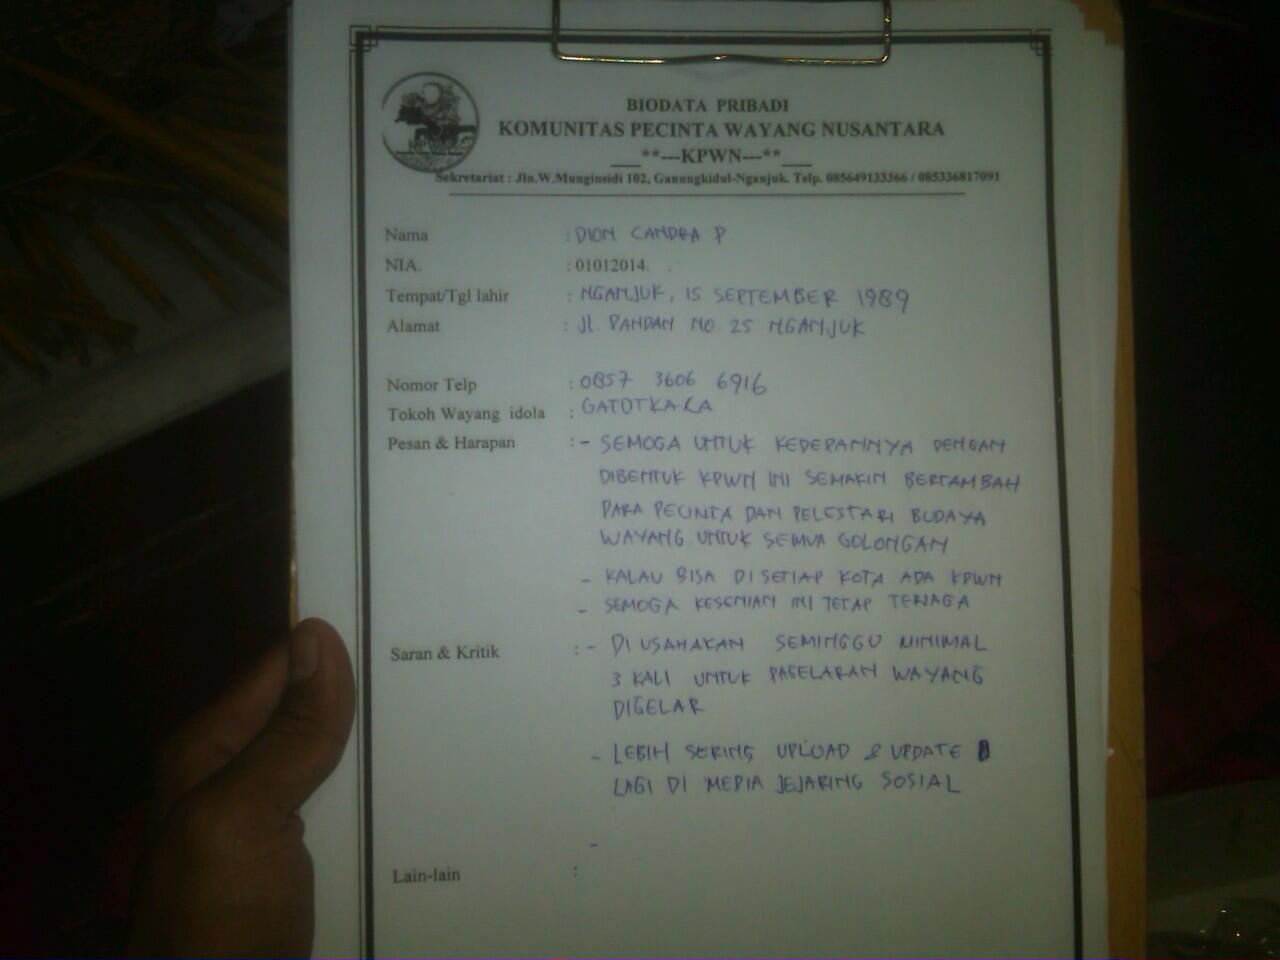 BIODATA PRIBADI
KOMUNITAS PECINTA WAYANG NUSANTARA
___**---KPWN---**___
Sekretariat : Jln.W.Munginsidi 102, Ganungkidul-Nganjuk. Telp. 085649133366 / 085336817091
Nama : DION CANDRA P
NIA. : 01012014.
Tempat/Tgl lahir : NGANJUK, 15 SEPTEMBER 1989
Alamat : Jl. PANDAN NO. 25 NGANJUK
Nomor Telp : 0857 3606 6916
Tokoh Wayang idola : GATOTKACA
Pesan & Harapan : - SEMOGA UNTUK KEDEPANNYA DENGAN
DIBENTUK KPWN INI SEMAKIN BERTAMBAH
PARA PECINTA DAN PELESTARI BUDAYA
WAYANG UNTUK SEMUA GOLONGAN
- KALAU BISA DI SETIAP KOTA ADA KPWN
- SEMOGA KESENIAN INI TETAP TERJAGA
Saran & Kritik : - DI USAHAKAN SEMINGGU MINIMAL
3 KALI UNTUK PAGELARAN WAYANG
DIGELAR
- LEBIH SERING UPLOAD & UPDATE
LAGI DI MEDIA JEJARING SOSIAL
-
Lain-lain :